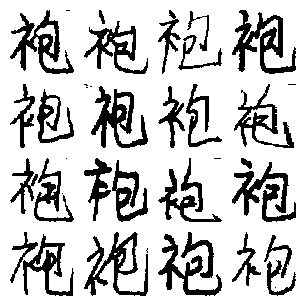 袍袍袍袍
袍袍袍袍
袍袍袍袍
袍袍袍袍